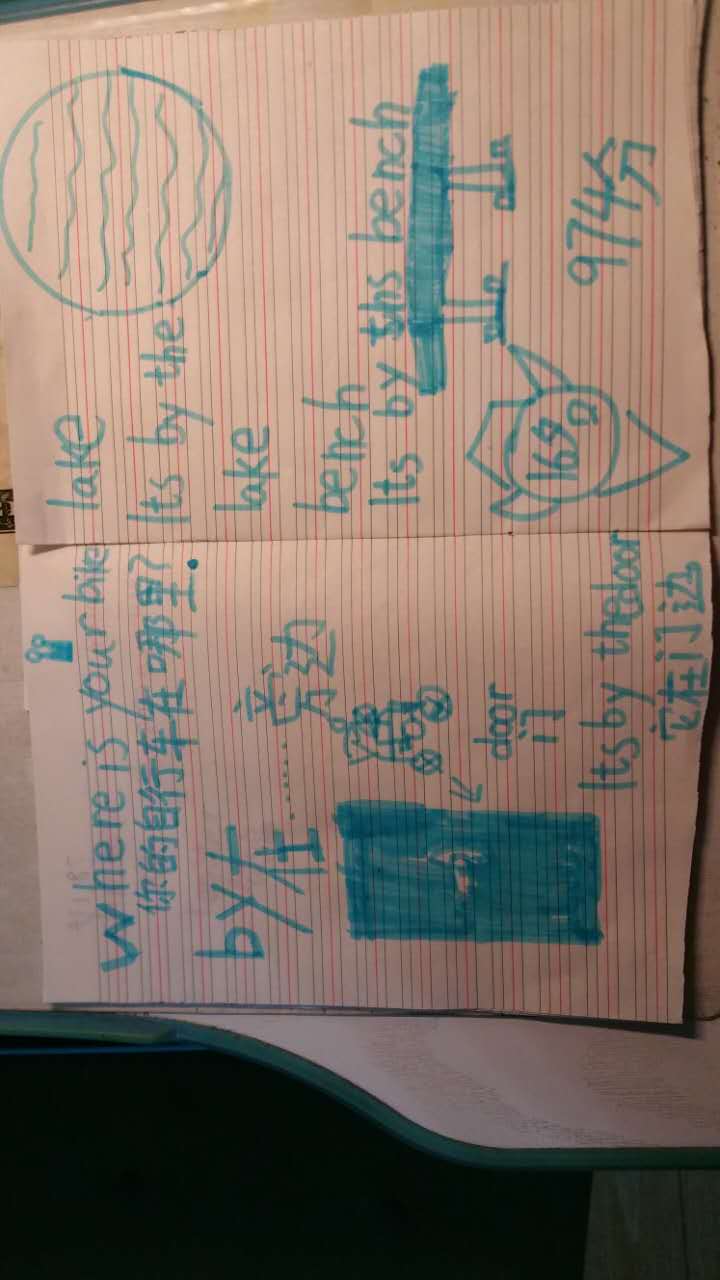 where is your bike
你的自行车在哪里?
by
在……旁边
door
门
Its by the door
它在门边
lake
Its by the
lake
bench
Its by ths bench
974分